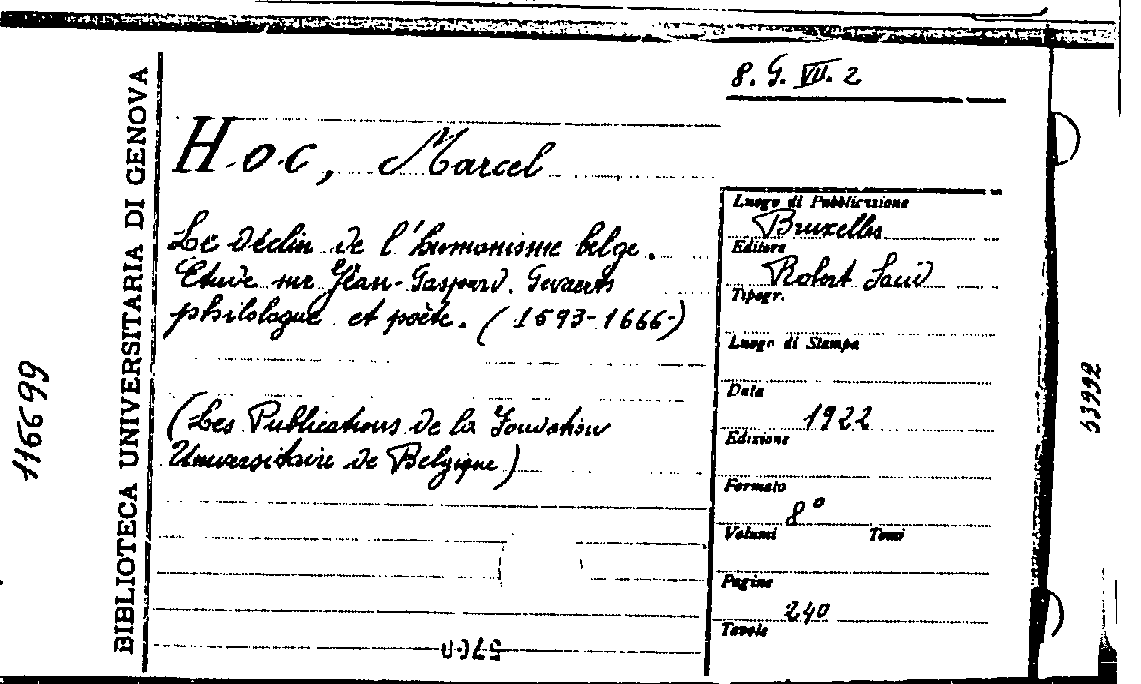 8. G. VII. 2
BIBLIOTECA UNIVERSITARIA DI GENOVA
Hoc, Marcel
Le déclin de l'humanisme belge.
Etude sur Jean-Gaspard. Gevaerts
philologue et poète. (1593-1666-)
(Les Publications de la Fondation
Universitaire de Belgique)
Luogo di Pubblicazione
Bruxelles
Editore
Robert Sand
Tipogr.
Luogo di Stampa
Data
1922
Edizione
Formato
8°
Volumi Tomi
Pagine
240
Tavole
116699
53992